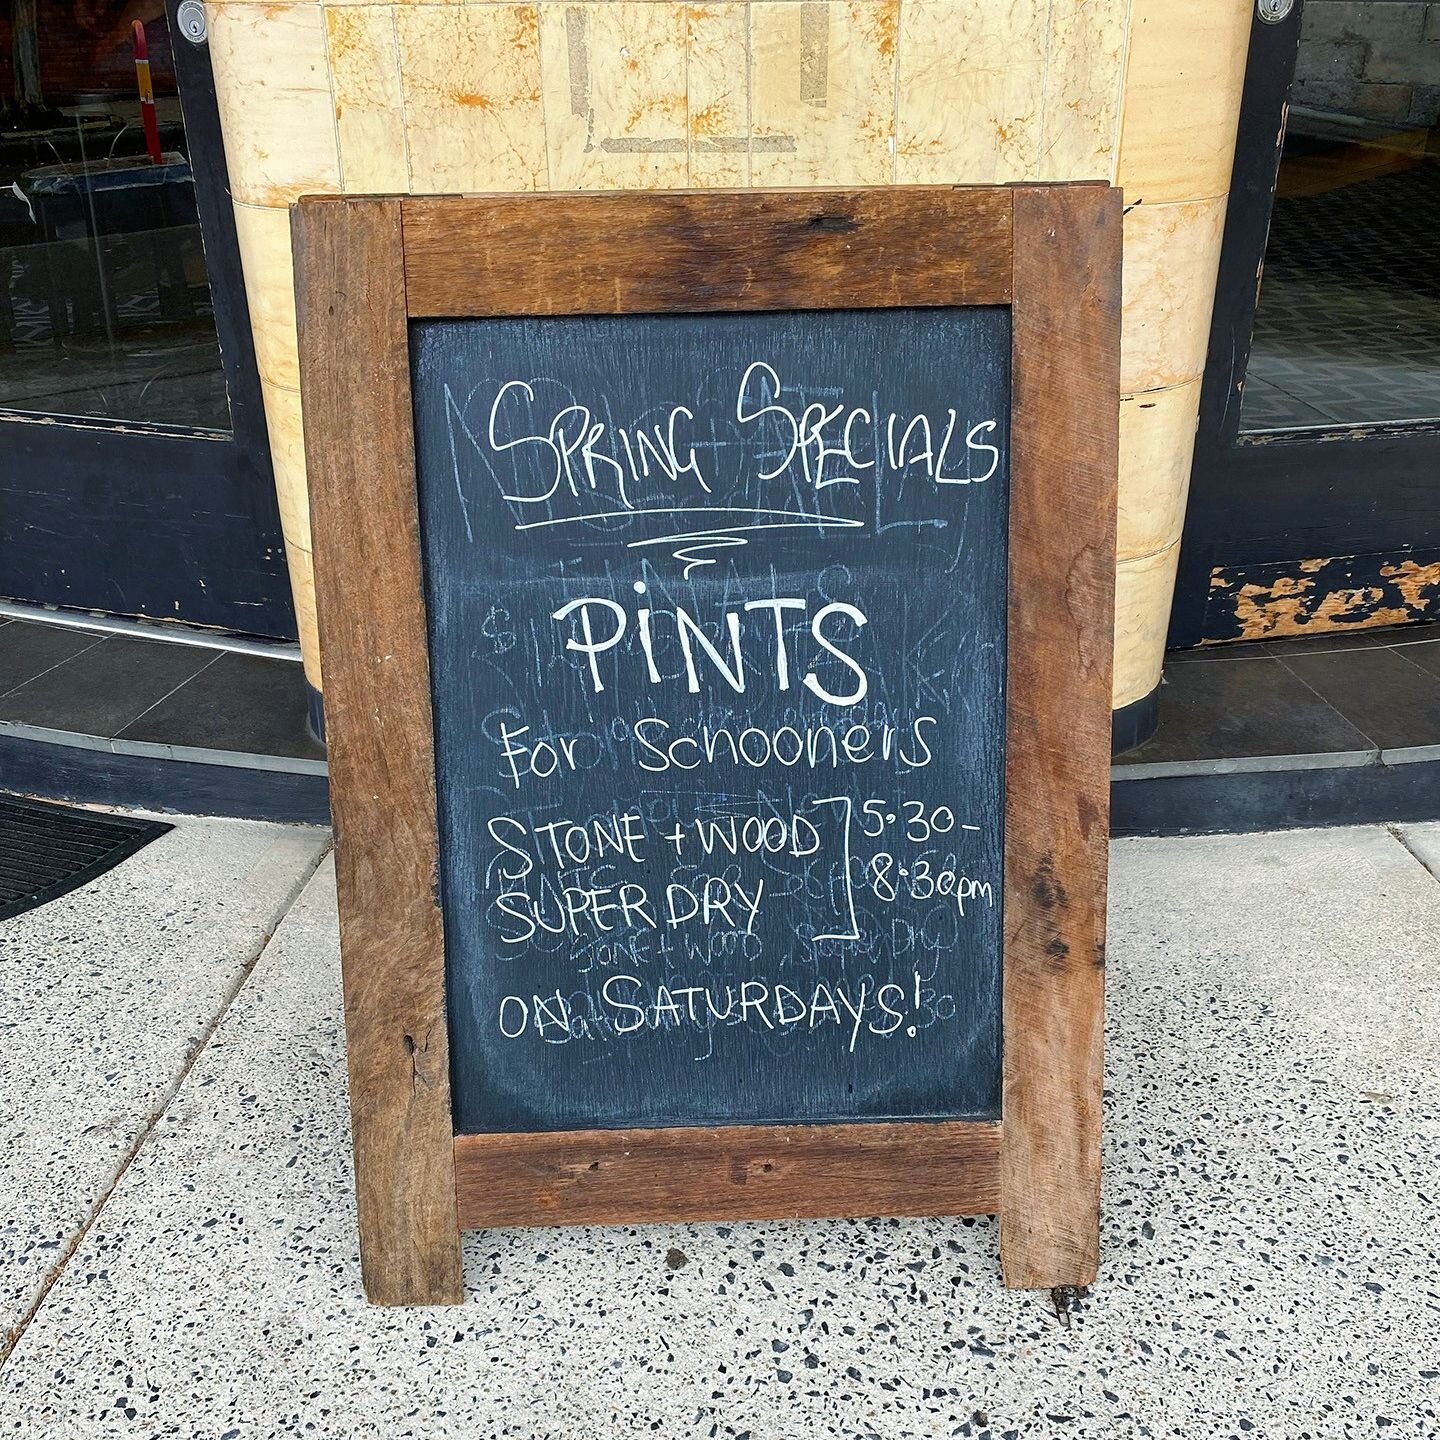 SPRING SPECIALS
PiNTS
For Schooners
STONE + WOOD ] 5.30-
SUPER DRY 8.30pm
ON SATURDAYS!